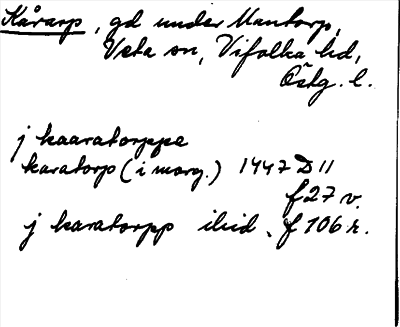 Kårarp, gd under Mantorp,
Veta sn, Vifolka hd,
Östg. l.
j kaaratorppe
karatorp (i marg.) 1447 D 11
f 27 v.
j karatorpp ibid. f 106 r.